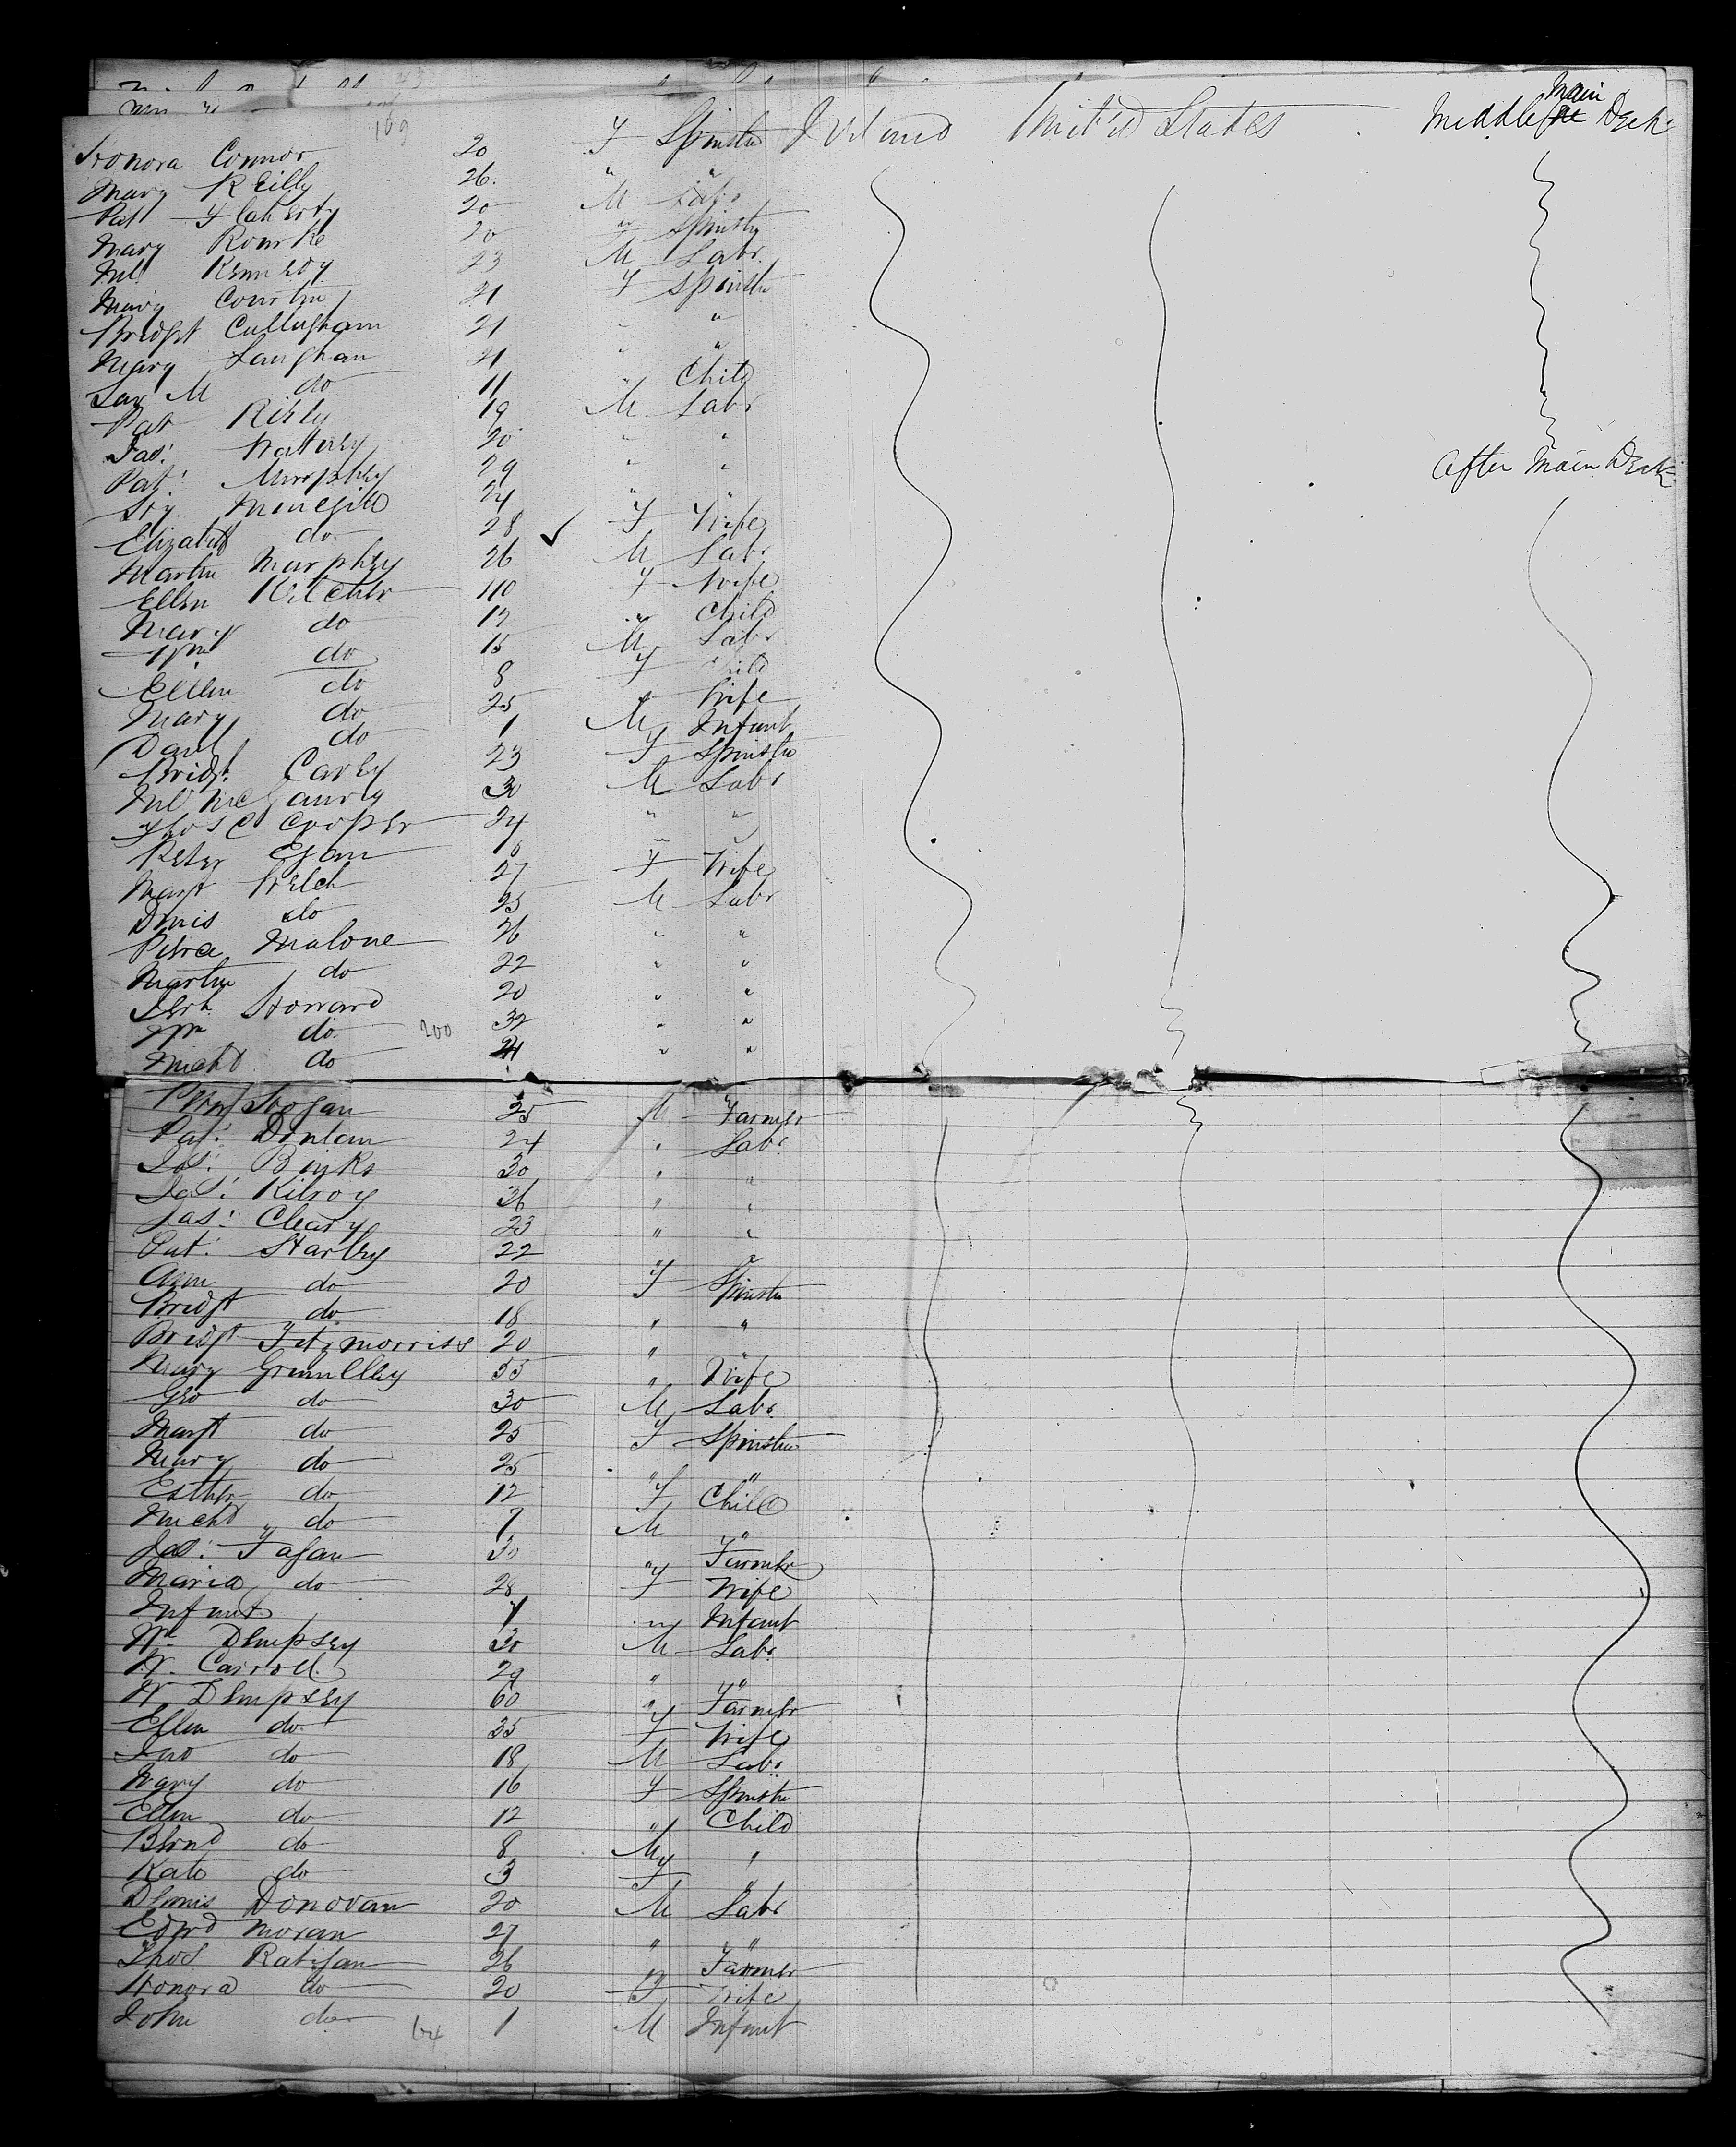 169
Honora Connor 20 F Spinster Ireland United States Middle Main Deck
Mary Reilly 26 " "
Pat Flaherty 20 M Labr
Mary Rourke 20 Spinster
Ml Kennedy 23 M Labr
Mary Courtin 21 F Spinster
Bridgt Cullugham 21 " "
Mary Laughan 21 " "
Sar M do 11 " Child
Pat Riely 19 M Labr
Jas: 20 " "
Pat: Murphy 29 " " After Main Deck
24 " "
Elizabeth do 28 F Wife
Martin Murphey 26 M Labr
Ellen 40 F Wife
Mary do " Child
Wm do 15 M Labr
Ellen do 8 F Child
Mary do 25 Wife
Danl do 1 M Infant
Bridgt. Carey 23 F Spinster
Ml McGaurly 30 M Labr
Thos C Cooper 24 " "
Peter Egan " "
Margt Welch 27 F Wife
Dinis do 25 M Labr
Malone 26 " "
Martin do 22 " "
Howard 20 " "
Wm do 200 32 " "
Michl do 21 " "
Hogan 25 M Farmer
Pat: Donlan 24 " Labr
Jas: Binks 30 " "
Jas: Kilroy 26 " "
Jas: Cleary 23 " "
Pat: Hartey 22 " "
Ann do 20 F Spinster
Bridgt do 18 " "
Bridgt Fitzmorriss 20 " "
Mary Grimlley 55 " Wife
Geo do 30 M Labr
Margt do 25 F Spinster
Mary do 25 " "
Esther do 12 F Child
Michl do 7 M "
Jas: Fagan 30 " Farmer
Maria do 28 F Wife
Infant 1 Infant
Wm Dempsey 30 M Labr
W. Carroll 29 " "
W Dempsey 60 " Farmer
Ellen do 35 F Wife
Jno do 18 M Labr
Mary do 16 F Spinster
Ellen do 12 " Child
Bernd do 8 M "
Kate do 3 F "
Dennis Donovan 20 M Labr
Edwd Moran 27 " "
Thos Ratigan 26 " Farmer
Honora do 20 F Wife
John do 64 1 M Infant